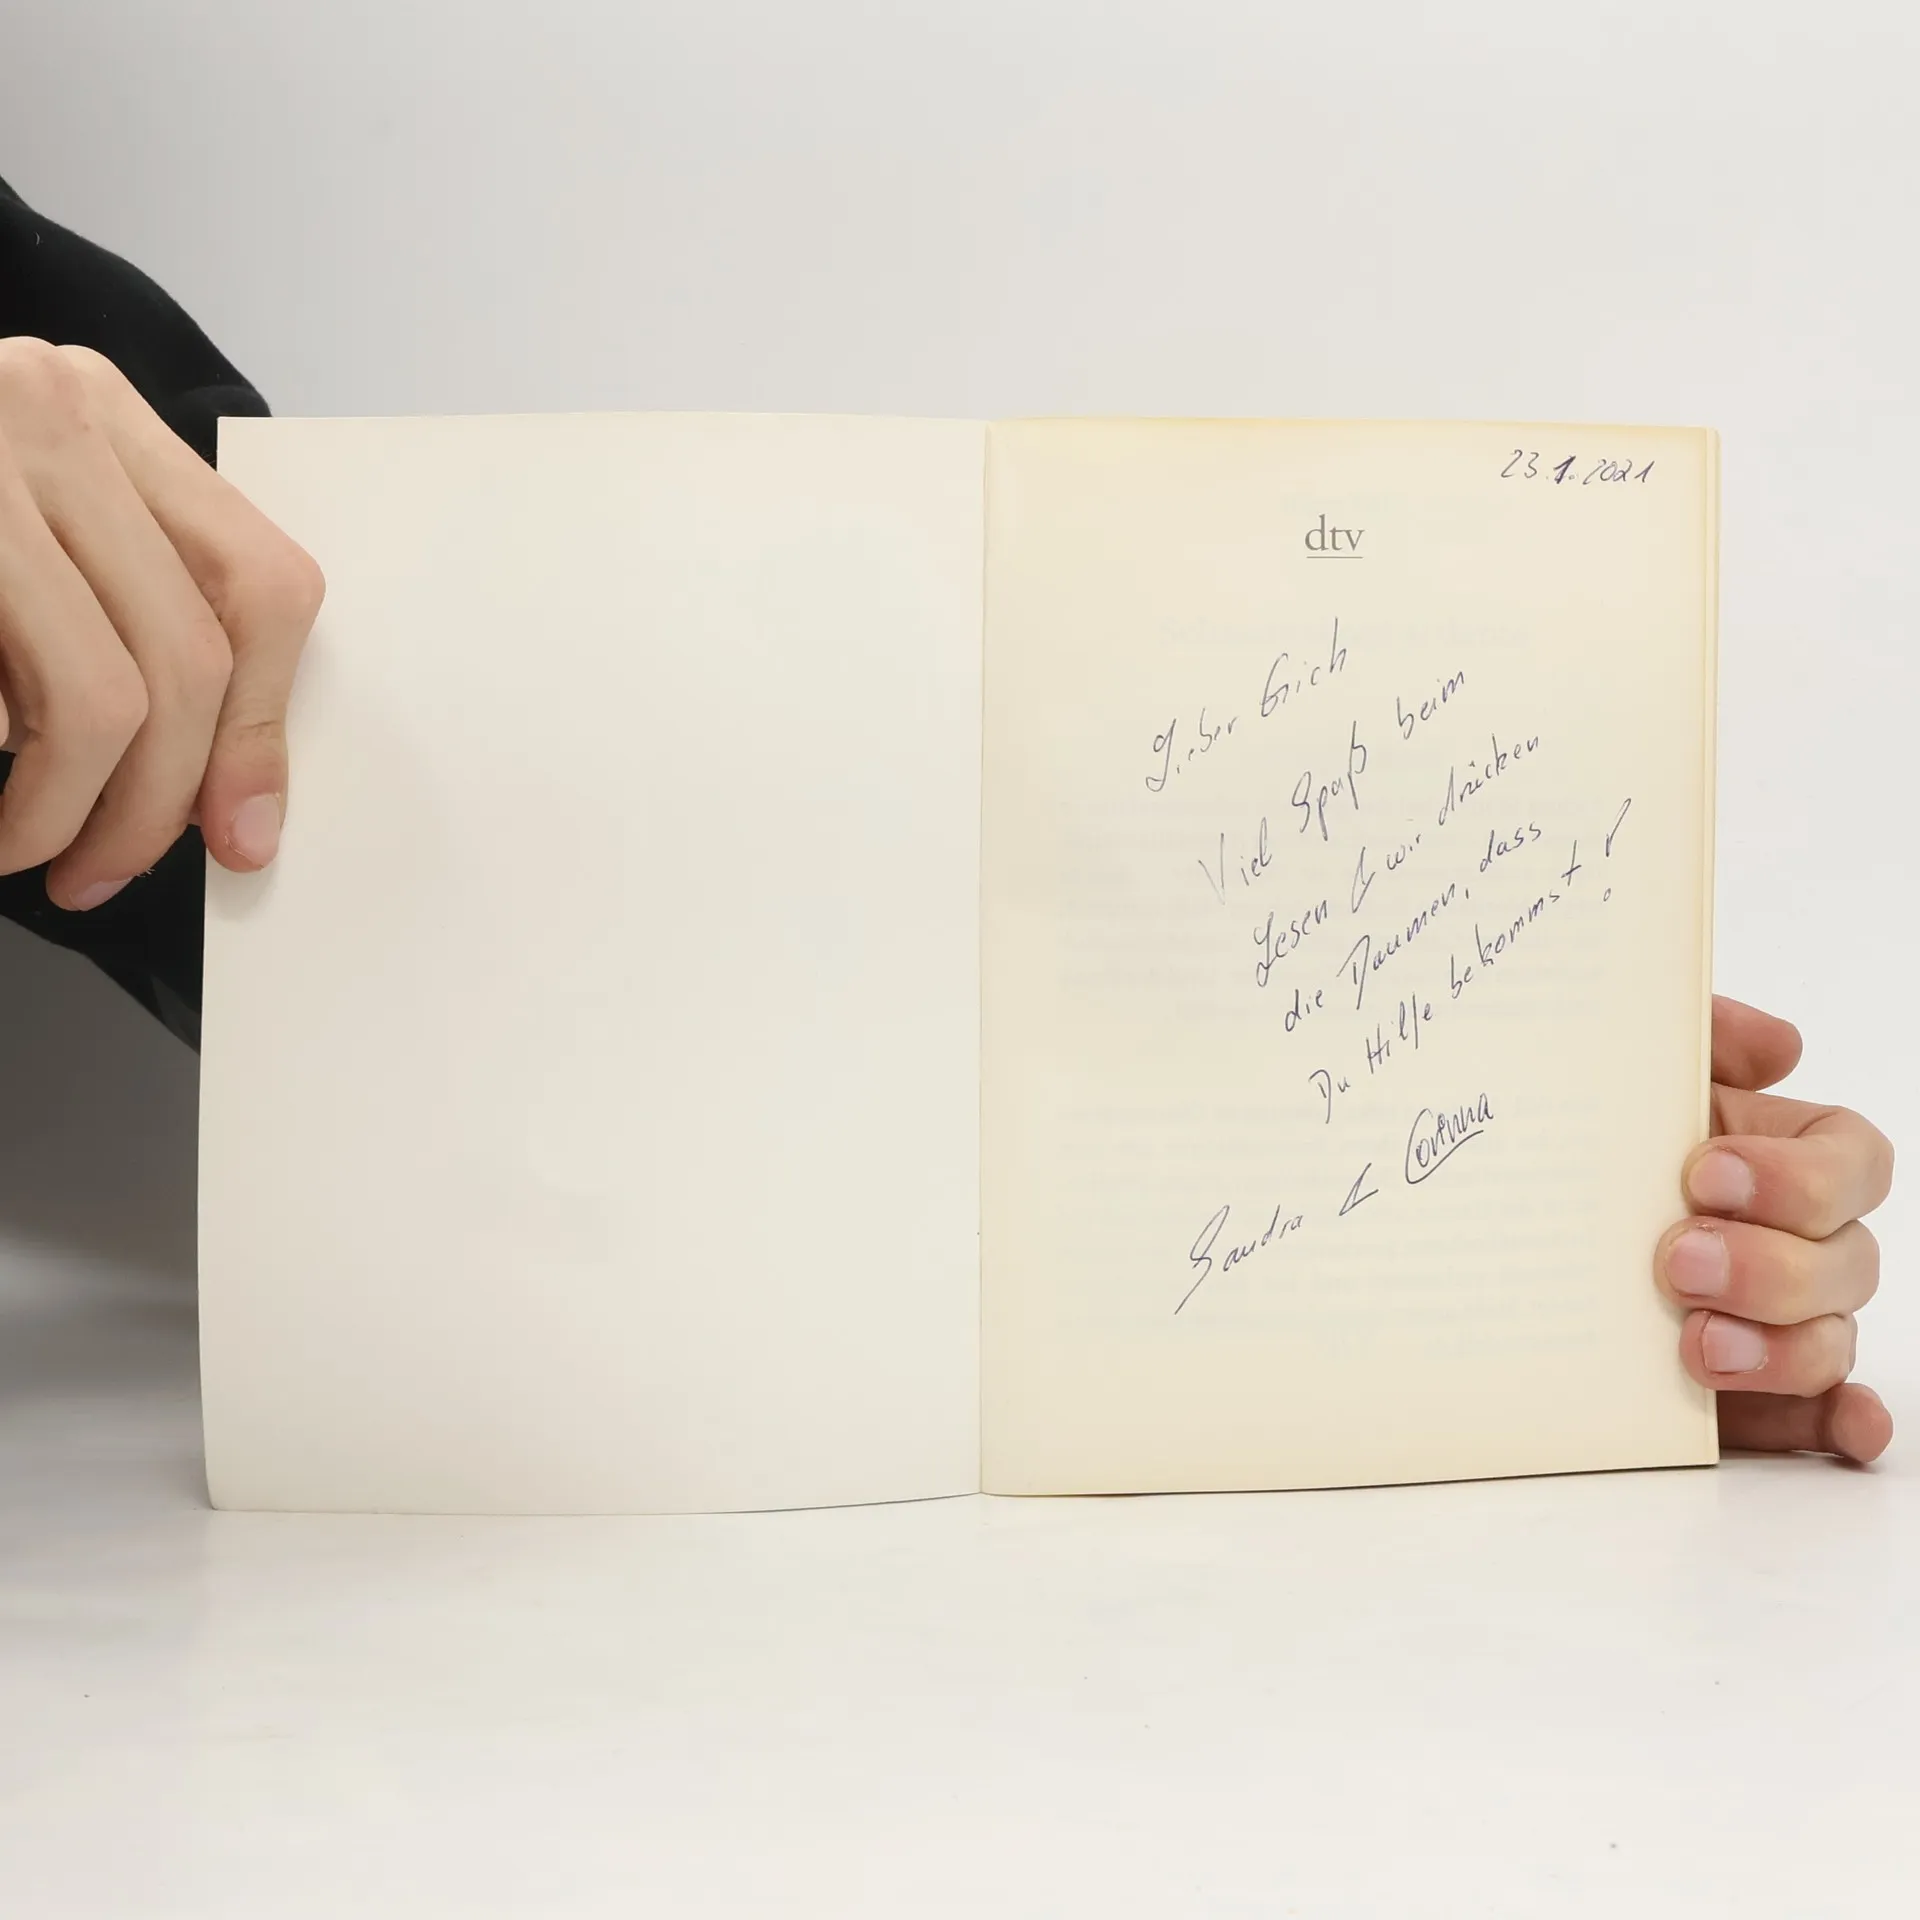 23.1.2021
dtv
Lieber Erich
Viel Spaß beim
Lesen & wir drücken
die Daumen, dass
Du Hilfe bekommst!
Sandra & Corinna